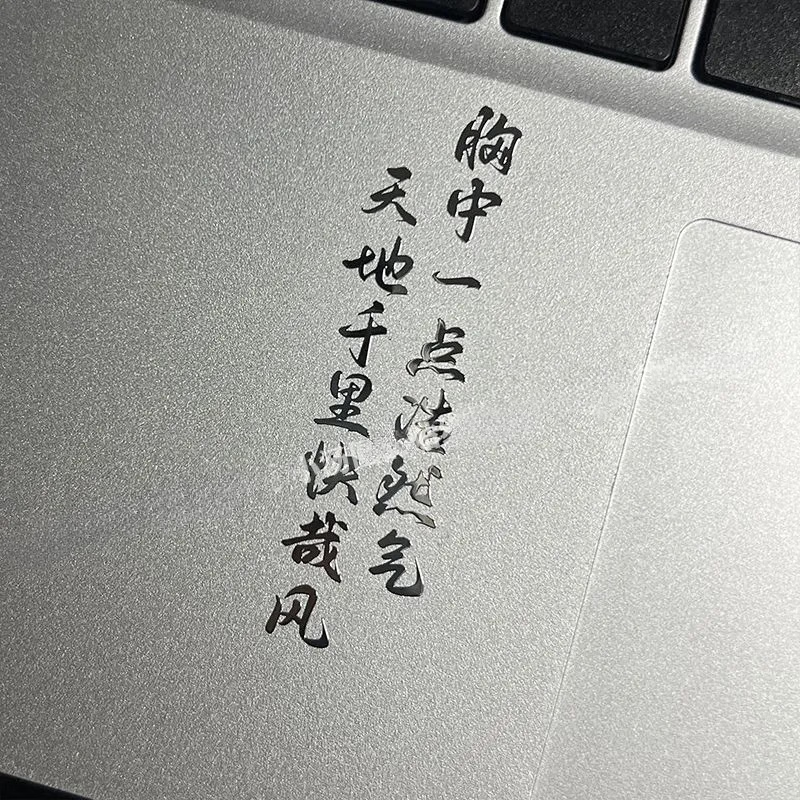 胸中一点浩然气
天地千里快哉风